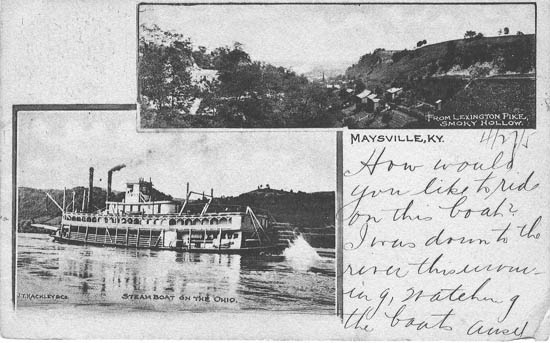 FROM LEXINGTON PIKE,
SMOKY HOLLOW.
MAYSVILLE, KY.
How would
you like to ride
on this boat?
I was down to the
river this morn-
ing, watching
the boats
STEAMBOAT ON THE OHIO.
J.T. KACKLEY & CO.